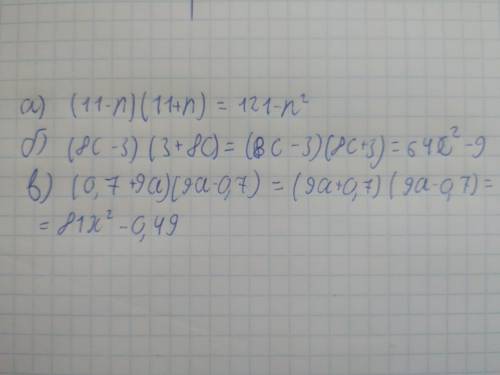 а) (11-n)(11+n) = 121-n²
б) (8c-3)(3+8c) = (8c-3)(8c+3) = 64c²-9
в) (0,7+9a)(9a-0,7) = (9a+0,7)(9a-0,7) =
= 81x²-0,49